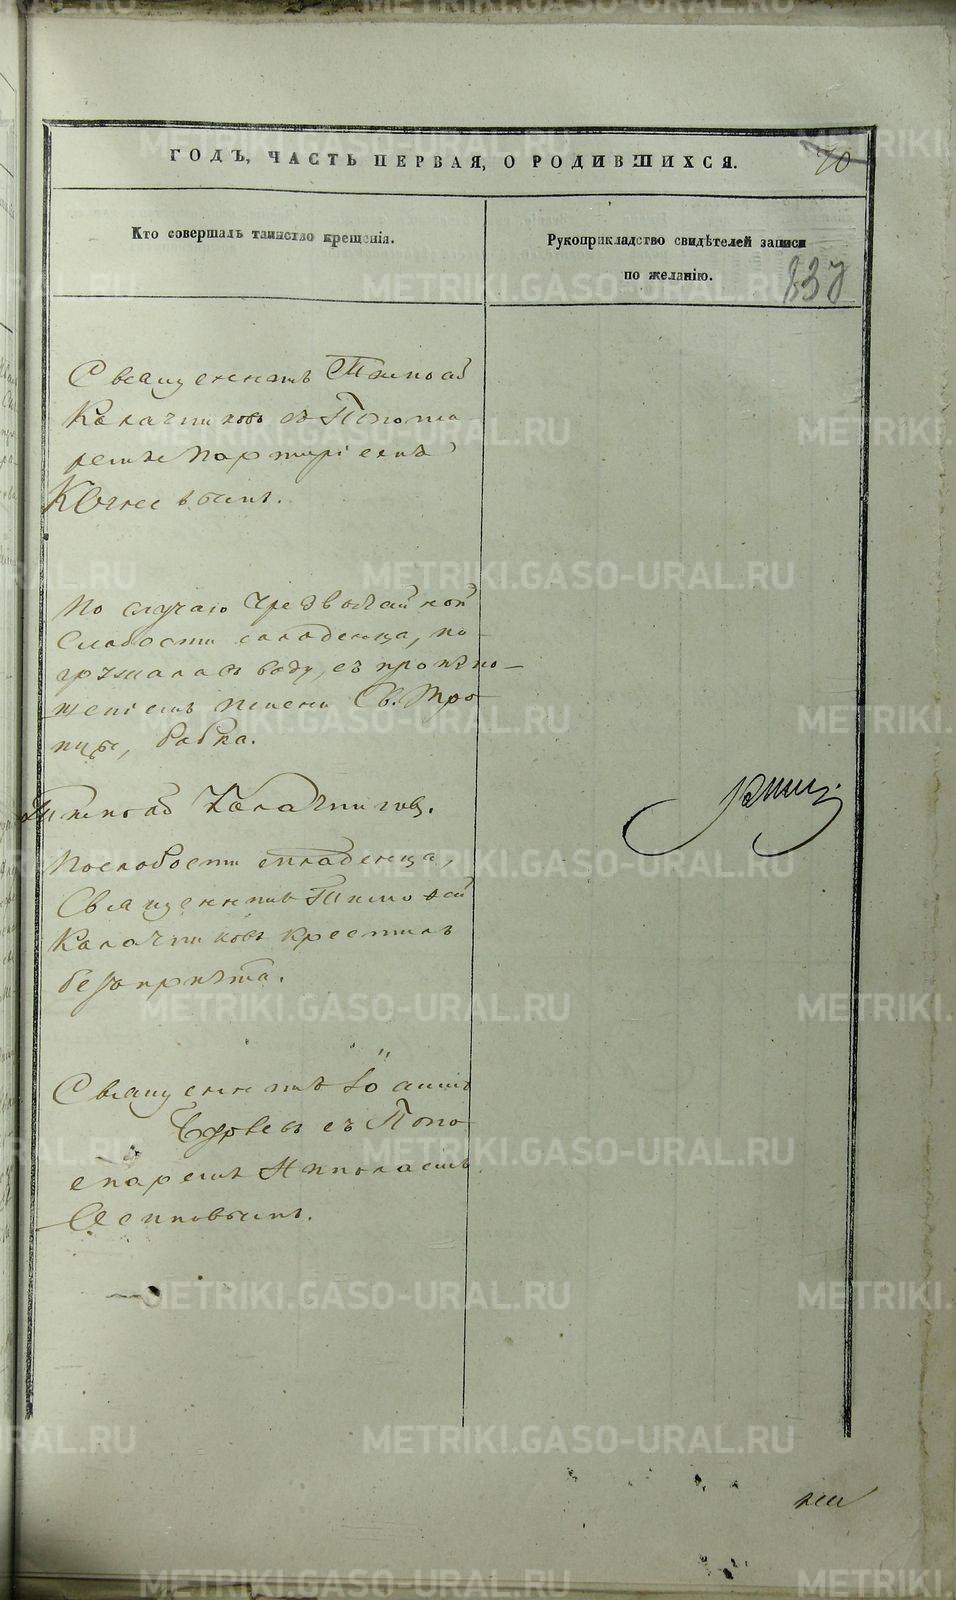 ГОДЪ, ЧАСТЬ ПЕРВАЯ, О РОДИВШИХСЯ.
70
Кто совершалъ таинство крещенія.
Рукоприкладство свидѣтелей записи
по желанію.
837
Священникъ Тимоѳей
Калачниковъ съ Поно
маремъ
По случаю Чрезвычайной
Слабости младенца, по
гружала въ воду, съ произно
шеніемъ имени Св. Тро
ицы, бабка.
Тимоѳей Калачниковъ.
По слабости младенца,
Священникъ Тимоѳей
Калачниковъ крестилъ
безъ причта.
Священникъ Іоаннъ
съ Поно
маремъ Николаемъ
METRIKI.GASO-URAL.RU